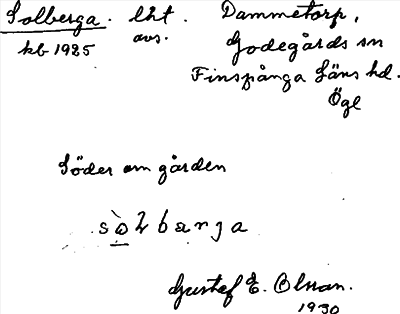 Solberga. lht. Dammetorp,
kb 1925 avs. Godegårds sn
Finspånga Läns hd.
Ögl
Söder om gården
sòlbarga
Gustaf E. Olsson.
1930